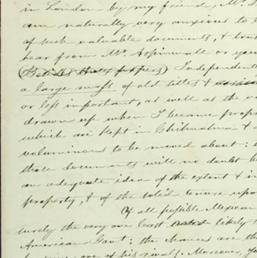 in London by my friend, Mr.
am naturally very anxious to
of such valuable documents, & trust
hear from Mr. Aspinwall or you
Independent
a large mass of old titles &
or less important, as well as the
drawn up when I became prop
which are kept in Chihuahua &
voluminous to be moved about:
those documents will no doubt
an adequate idea of the extent & in
property, & of the solid tenure upon
Of all possible Mexican
surely the very one least likely
American Govt; the chances are that
Moreover, yo